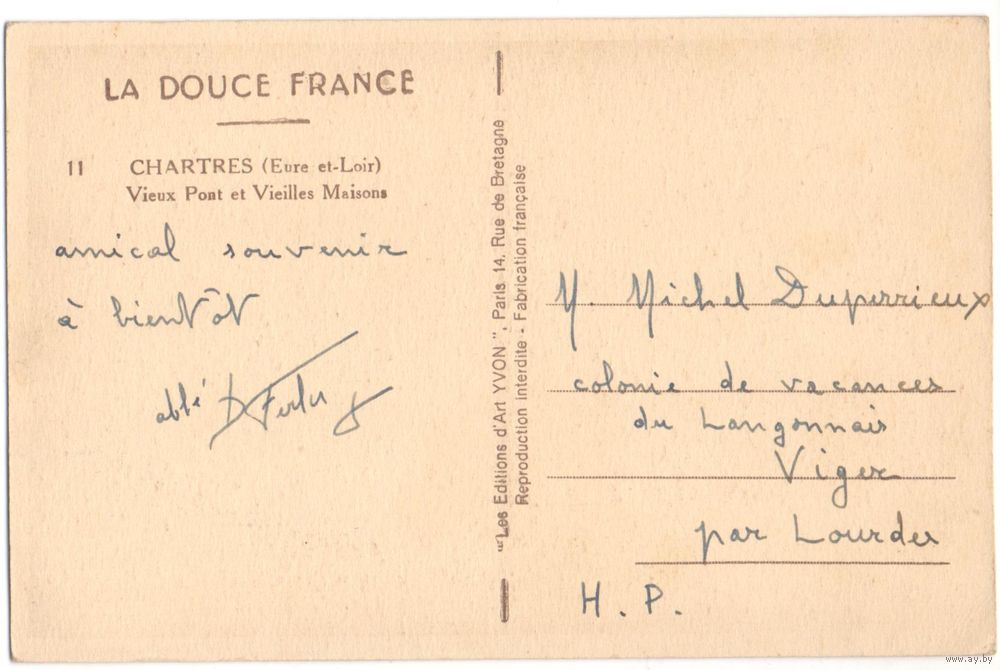 LA DOUCE FRANCE
11 CHARTRES (Eure et-Loir)
Vieux Pont et Vieilles Maisons
amical souvenir
à bientôt
abbé D
"Les Editions d'Art YVON", Paris 14, Rue de Bretagne
Reproduction interdite - Fabrication française
M. Michel Duperrieux
colonie de vacances
du Langonnais
Viger
par Lourdes
H. P.
www.ay.by